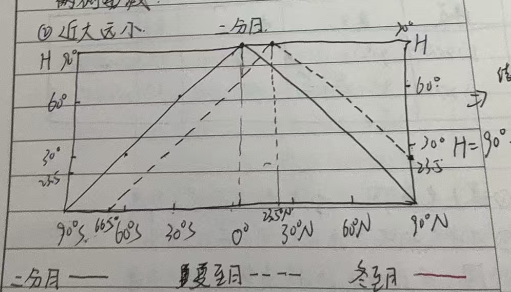 ② 近大远小. 二分日.
H 90° 90° H
60° 60°
30° 30° H=90°
23.5 23.5
90°S 66.5° 60°S 30°S 0° 23.5°N 30°N 60°N 90°N
二分日 —— 夏至日 ---- 冬至日 ——